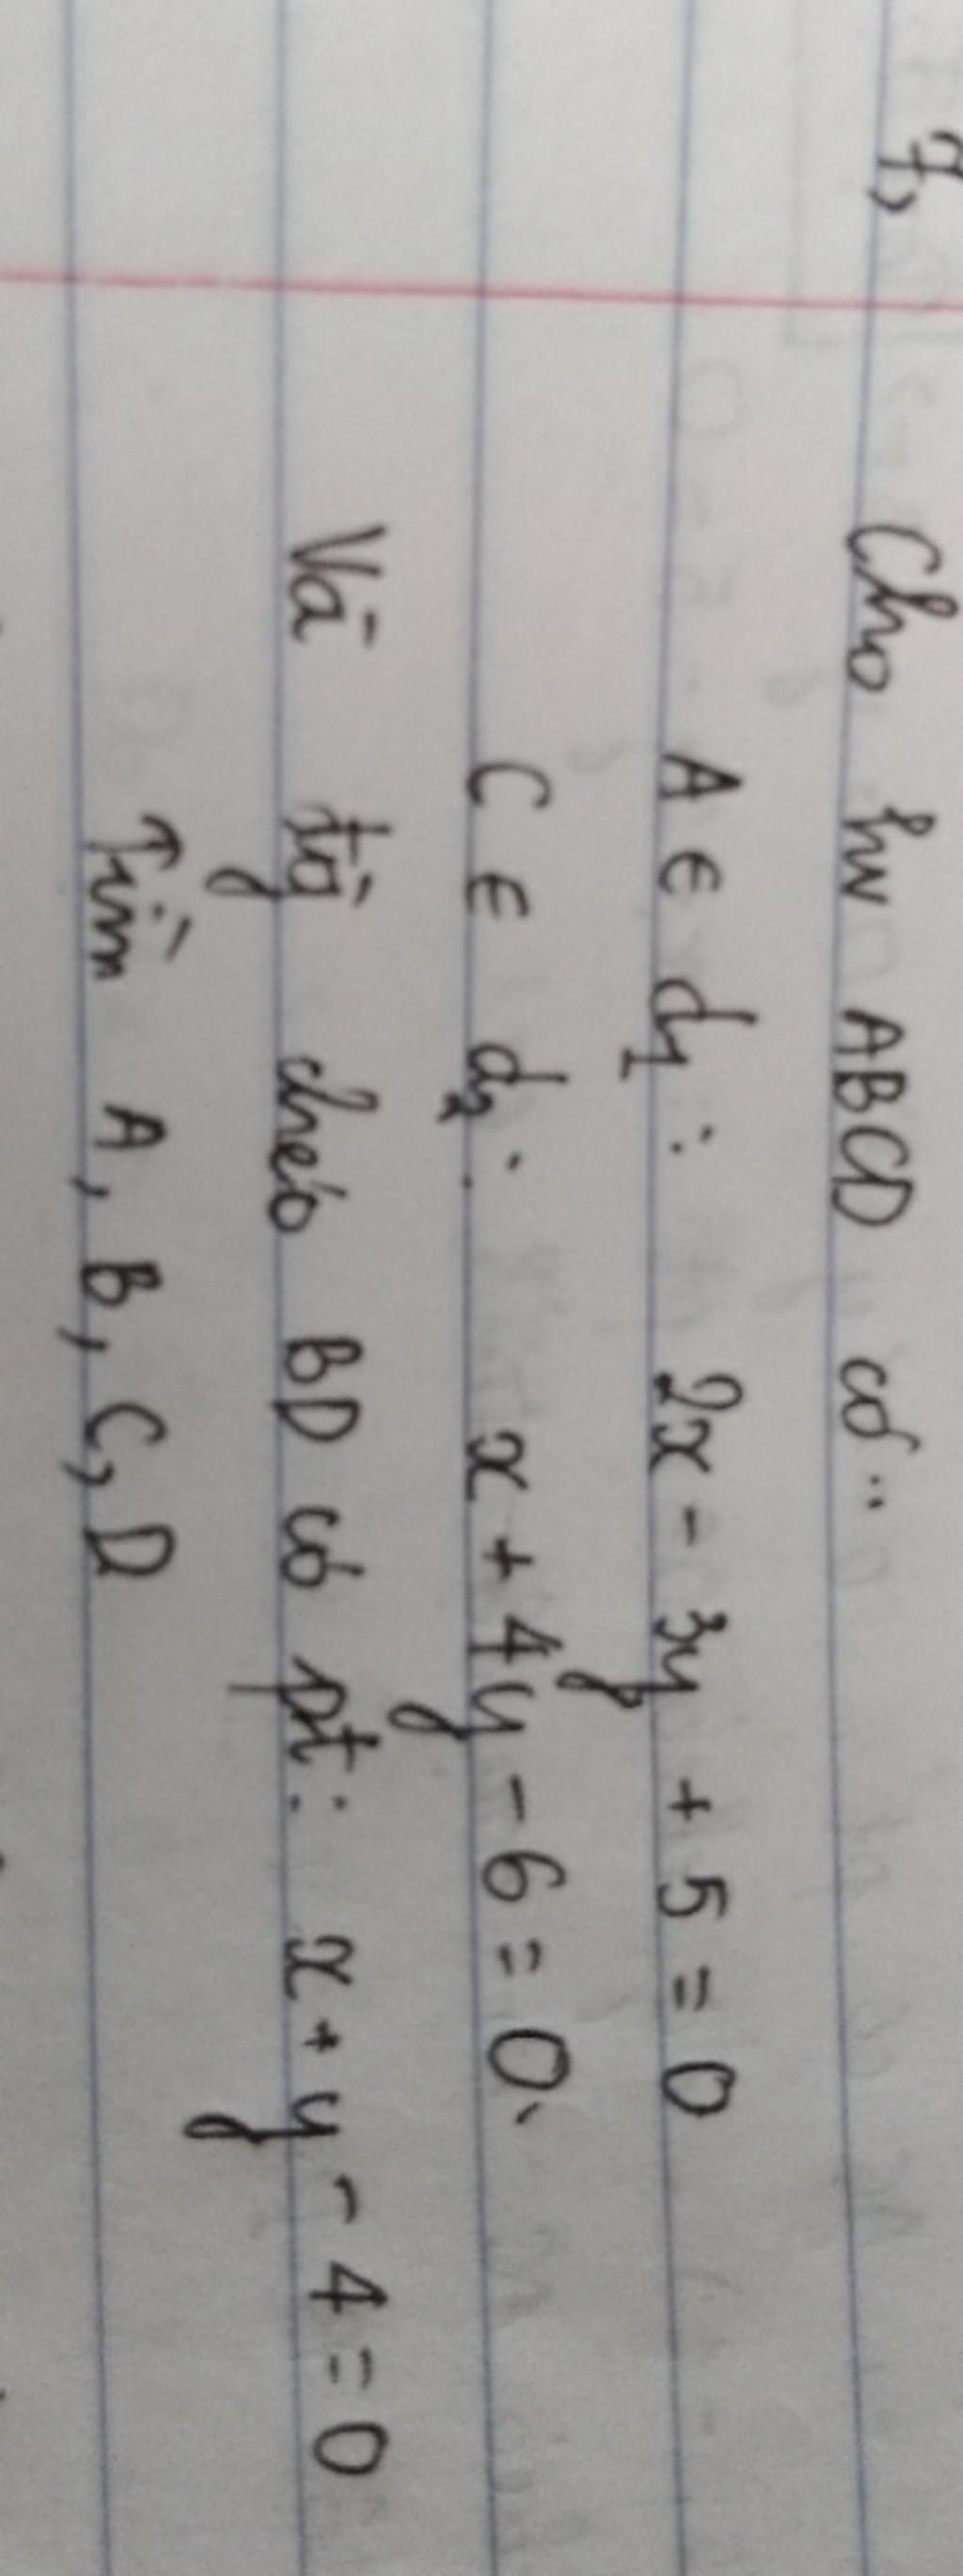 7, Cho hv ABCD có:
A ∈ d₁: 2x - 3y + 5 = 0
C ∈ d₂: x + 4y - 6 = 0.
Và đg chéo BD có pt: x + y - 4 = 0
Tìm A, B, C, D